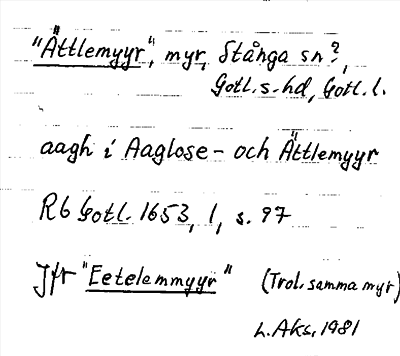 "Ättlemyyr", myr, Stånga sn?,
Gotl. s. hd, Gotl. l.
aagh i Aaglose- och Ättlemyyr
Rb Gotl. 1653, 1, s. 97
Jfr "Eetelemmyyr" (Trol. samma myr)
L. Aks, 1981